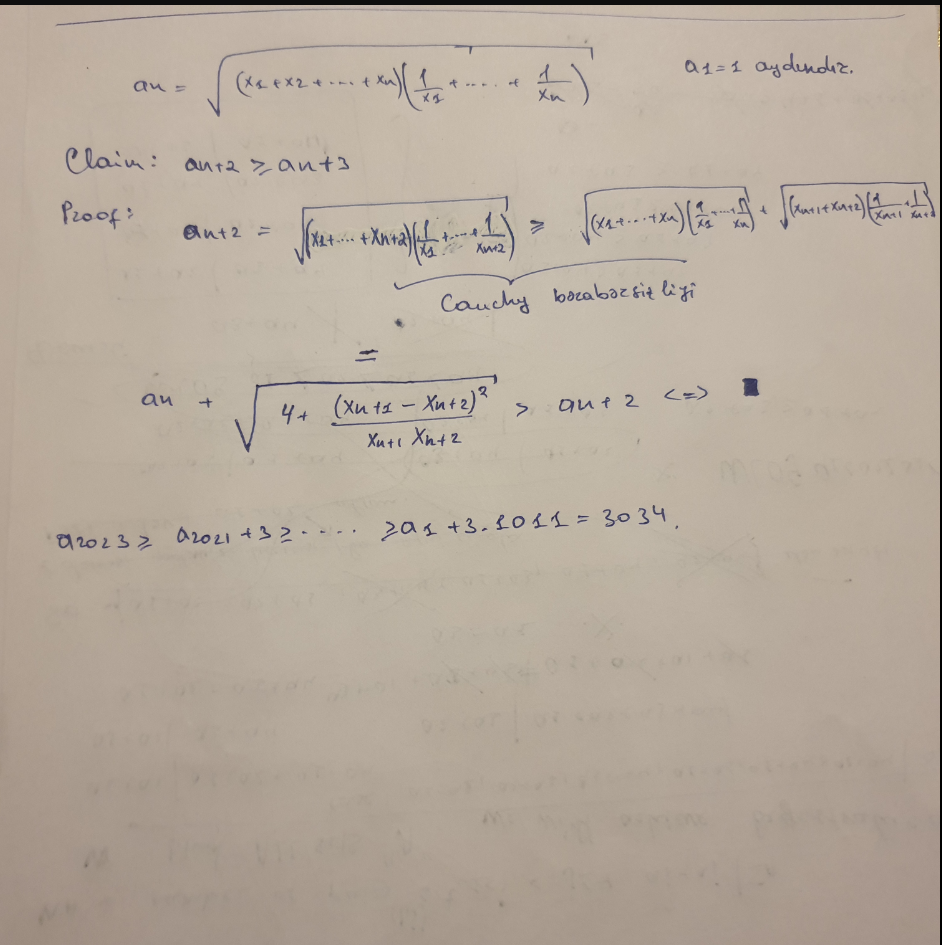 an = √((x1+x2+....+xn)(1/x1+.....+1/xn)) a1=1 aydındır.
Claim: an+2 ≥ an+3
Proof: an+2 = √((x1+....+xn+2)(1/x1+....+1/xn+2)) ≥ √((x1+....+xn)(1/x1+...+1/xn)) + √((xn+1+xn+2)(1/xn+1+1/xn+2))
Cauchy bərabərsizliyi
=
an + √(4+(xn+1-xn+2)²/(xn+1 xn+2)) > an+2 <=> ■
a2023 ≥ a2021+3 ≥ ..... ≥ a1+3.1011=3034.